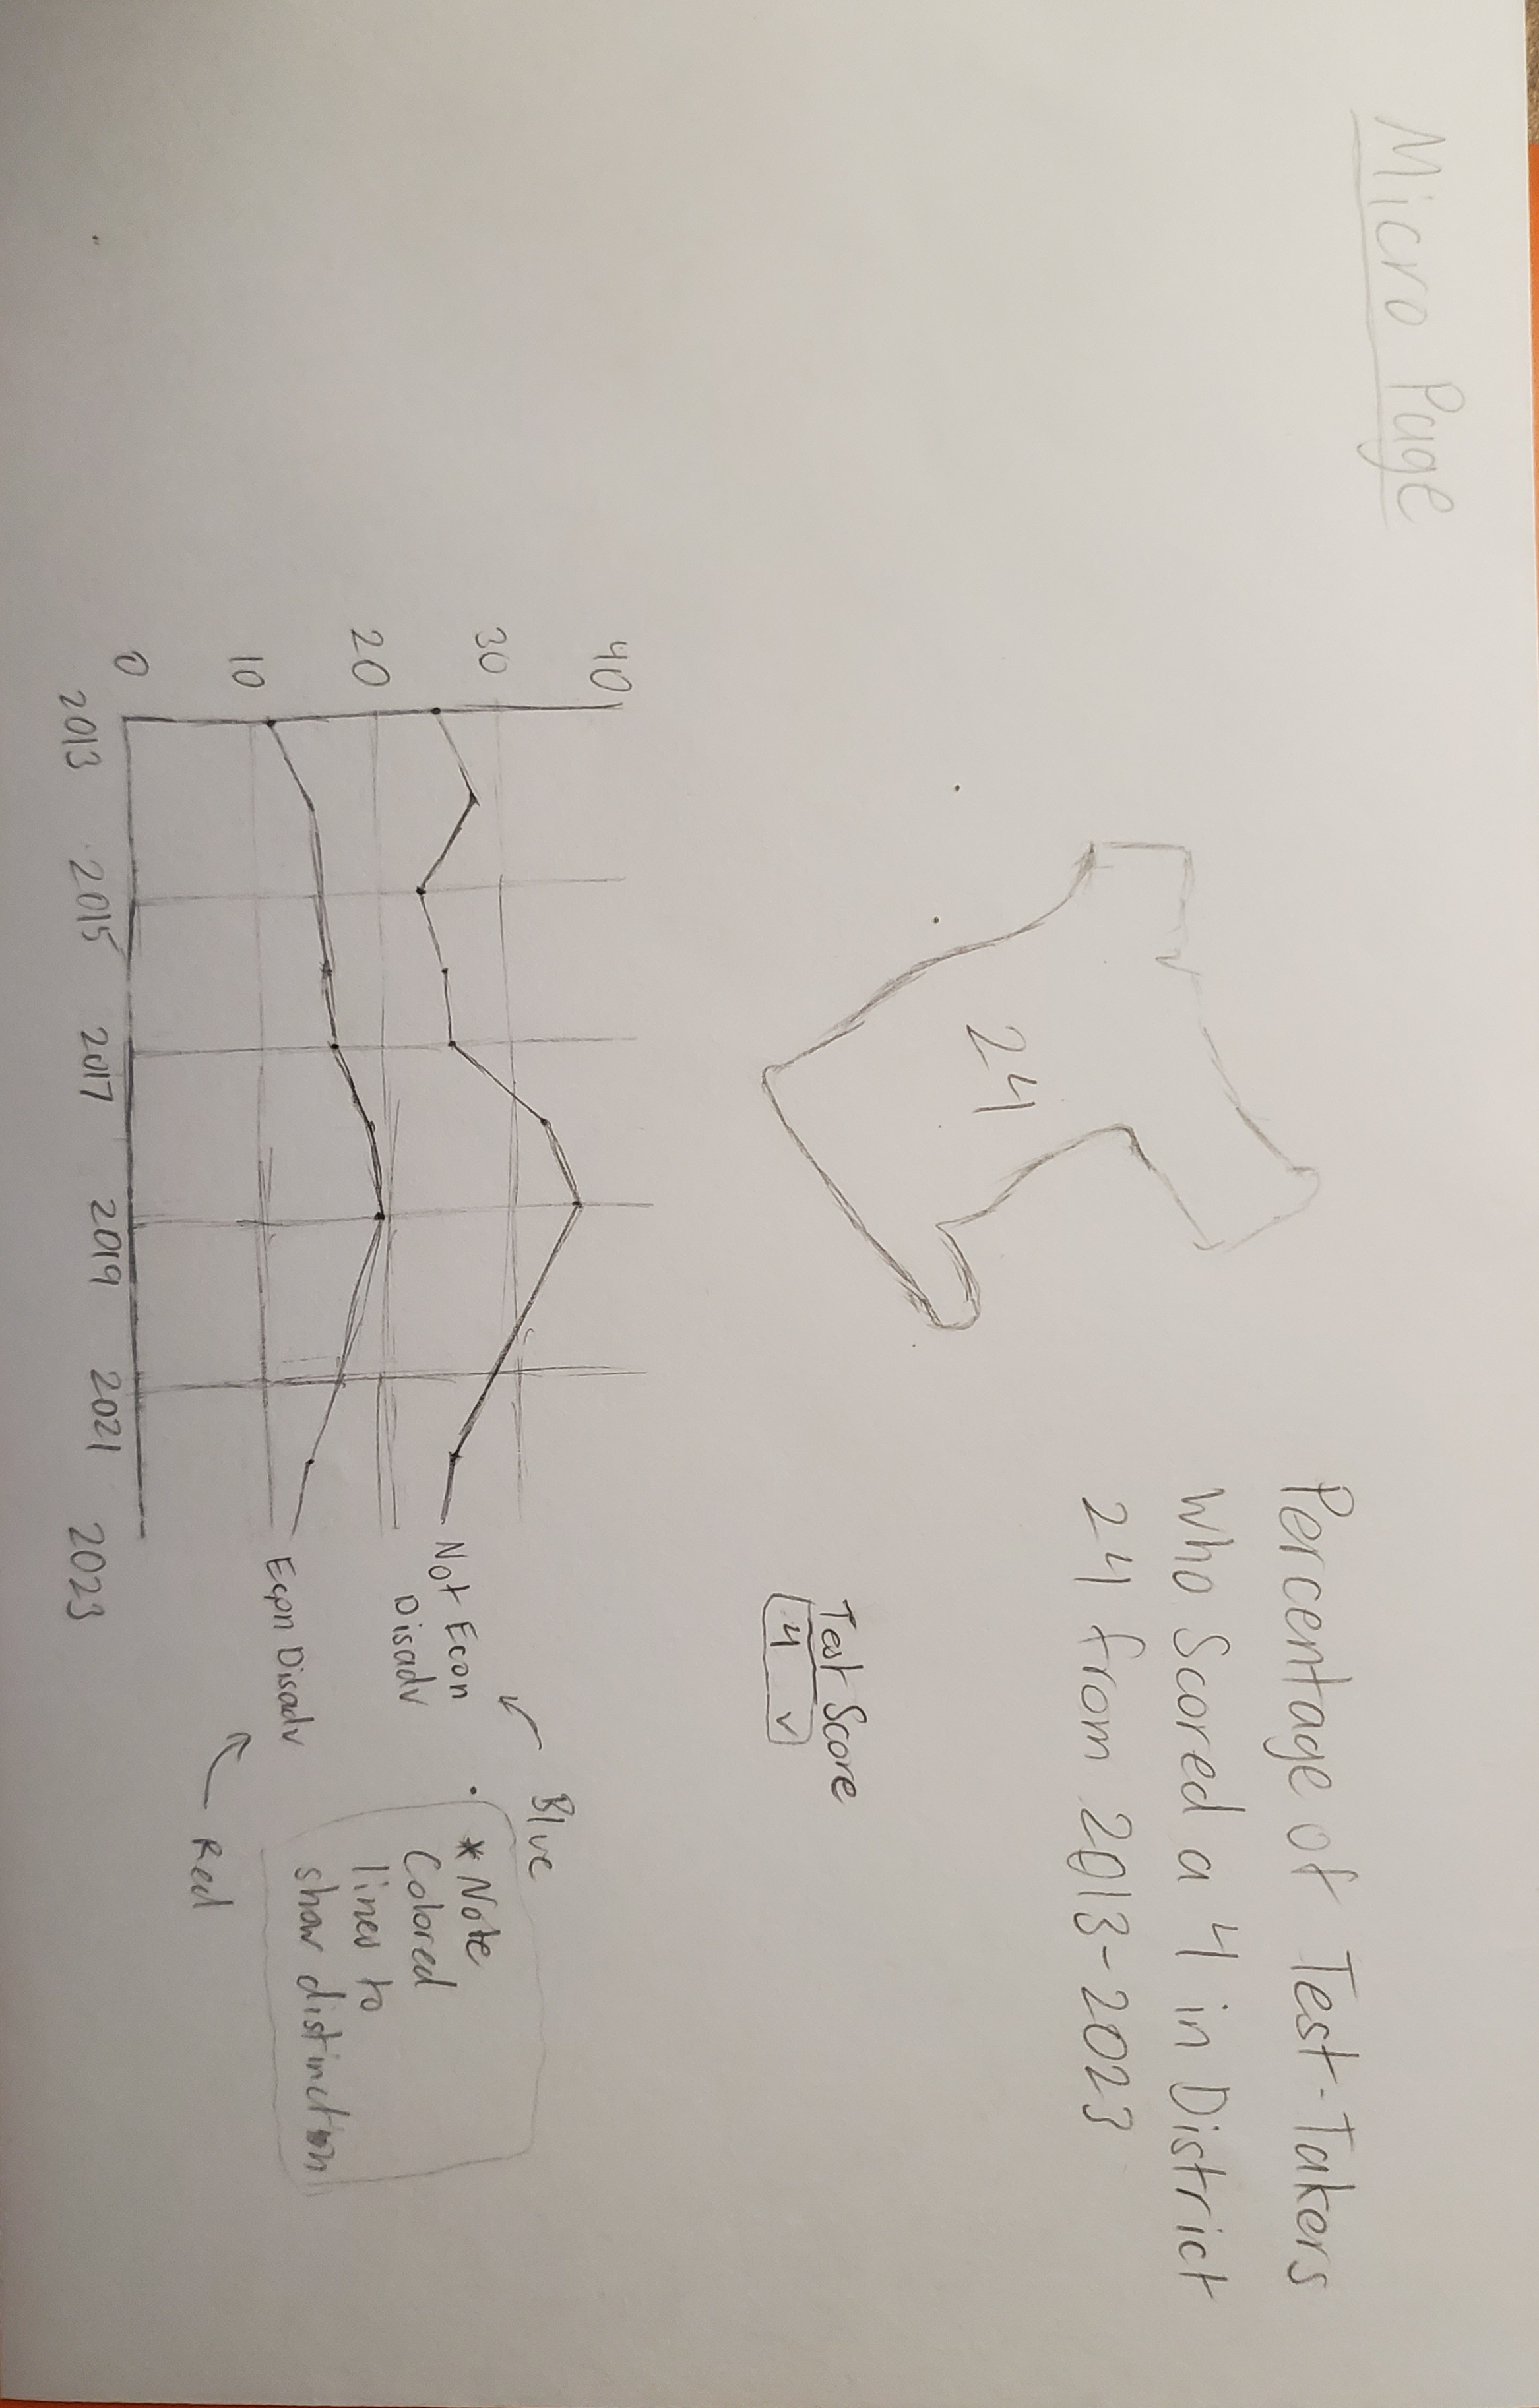 Micro Page
Percentage of Test-Takers
Who Scored a 4 in District
24 from 2013-2023
24
Test Score
4
40
30
20
10
0
2013 2015 2017 2019 2021 2023
Not Econ
Disadv
Econ Disadv
Blue
* Note
Colored
lines to
show distinction
Red